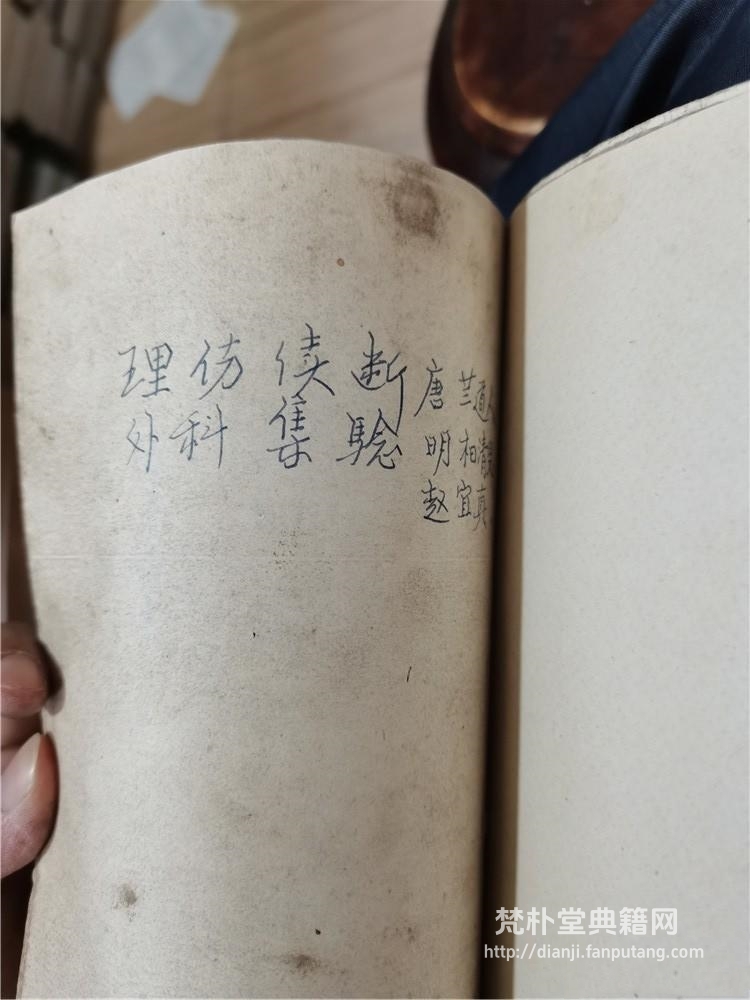 理伤续断 唐 兰道人
外科集騐 明 相清
赵宜真
梵朴堂典籍网
http://dianji.fanputang.com